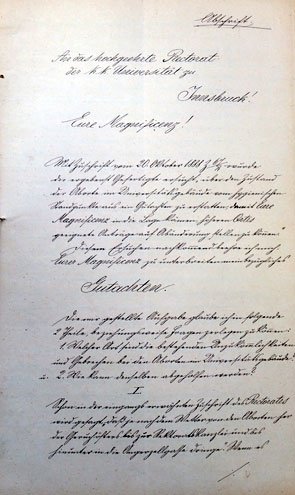 Abschrift.
An das hochgeehrte Rectorat
der k. k. Universität zu
Innsbruck!
Eure Magnificenz!
Mit Zuschrift vom 20. Oktober 1888 Z wurde
der ergebenst Gefertigte ersucht, über den Zustand
der Aborte im Universitätsgebäude vom hygienischen
Standpunkte aus ein Gutachten zu erstatten, damit Eure
Magnificenz in die Lage kämen, höheren Ortes
geeignete Anträge auf Abänderung stellen zu können.
Diesem Ersuchen nachkommend beehre ich mich
Eurer Magnificenz zu unterbreiten mein bezügliches
Gutachten.
Die mir gestellte Aufgabe glaube ich in folgende
2 Theile, beziehungsweise Fragen zerlegen zu können:
1. Welcher Art sind die bestehenden Unzukömmlichkeiten
und Gebrechen bei den Aborten im Universitätsgebäude?
u. 2. Wie kann denselben abgeholfen werden?
I.
Schon in der eingangs erwähnten Zuschrift des Rectorates
wird gesagt, daß je nach dem Wetter von den Aborten her
der Geruch bis zur Rektoratskanzlei und bis
hinunter in die Angerzellgasse dringe. Wenn es